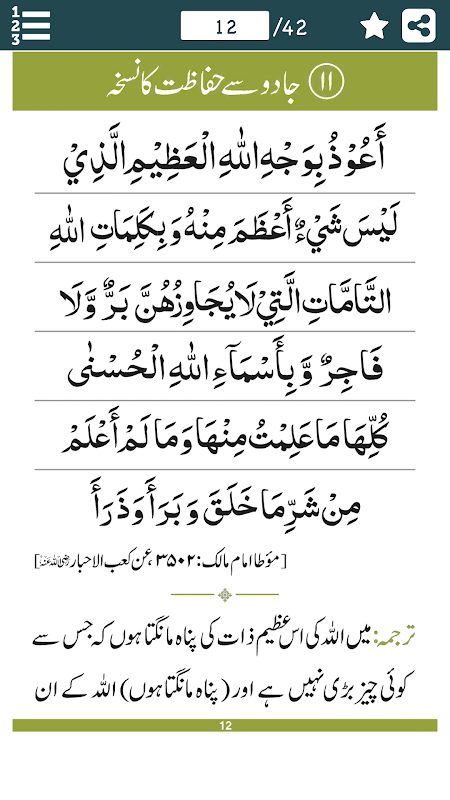 1
2
3
12 /42
۱۱ جادو سے حفاظت کا نسخہ
أَعُوْذُ بِوَجْهِ اللهِ الْعَظِيْمِ الَّذِيْ
لَيْسَ شَيْءٌ أَعْظَمَ مِنْهُ وَ بِكَلِمَاتِ اللهِ
التَّامَّاتِ الَّتِيْ لَا يُجَاوِزُهُنَّ بَرٌّ وَّلَا
فَاجِرٌ وَّ بِأَسْمَآءِ اللهِ الْحُسْنٰى
كُلِّهَا مَا عَلِمْتُ مِنْهَا وَ مَا لَمْ أَعْلَمْ
مِنْ شَرِّ مَا خَلَقَ وَ بَرَأَ وَ ذَرَأَ
[مؤطا امام مالک: ۳۵۰۲، عن کعب الاحبار رضی اللہ عنہ]
ترجمہ: میں اللہ کی اس عظیم ذات کی پناہ مانگتا ہوں کہ جس سے
کوئی چیز بڑی نہیں ہے اور (پناہ مانگتا ہوں) اللہ کے ان
12